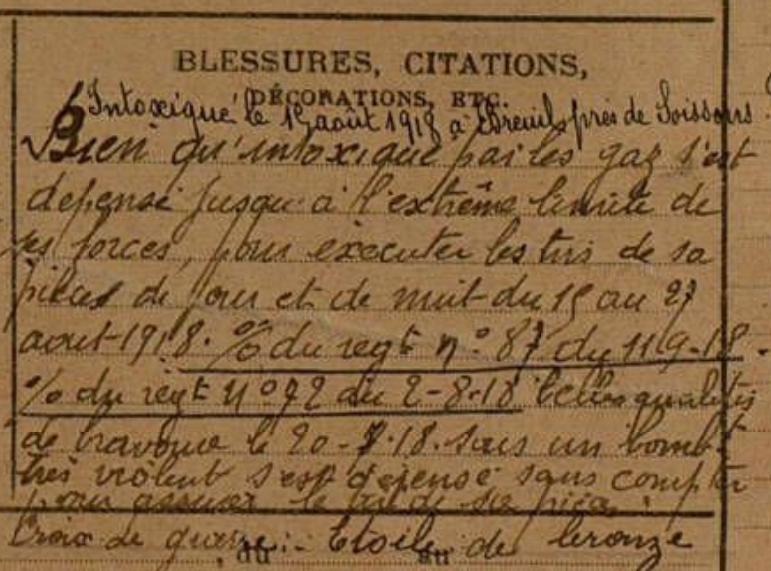 BLESSURES, CITATIONS,
DÉCORATIONS, ETC.
Intoxiqué le 15 août 1918 à Breuil près de Soissons
Bien qu'intoxiqué par les gaz s'est
dépensé jusqu'à l'extrême limite de
ses forces, pour exécuter les tirs de sa
pièce de jour et de nuit du 15 au 27
août 1918. % du regt n° 87 du 11-9-18.
% du regt n° 72 du 2-8-18 belles qualités
de bravoure le 20-7-18. sous un bombt
très violent s'est dépensé sans compter
pour assurer le tir de sa pièce.
Croix de guerre :- Etoile de bronze
du au